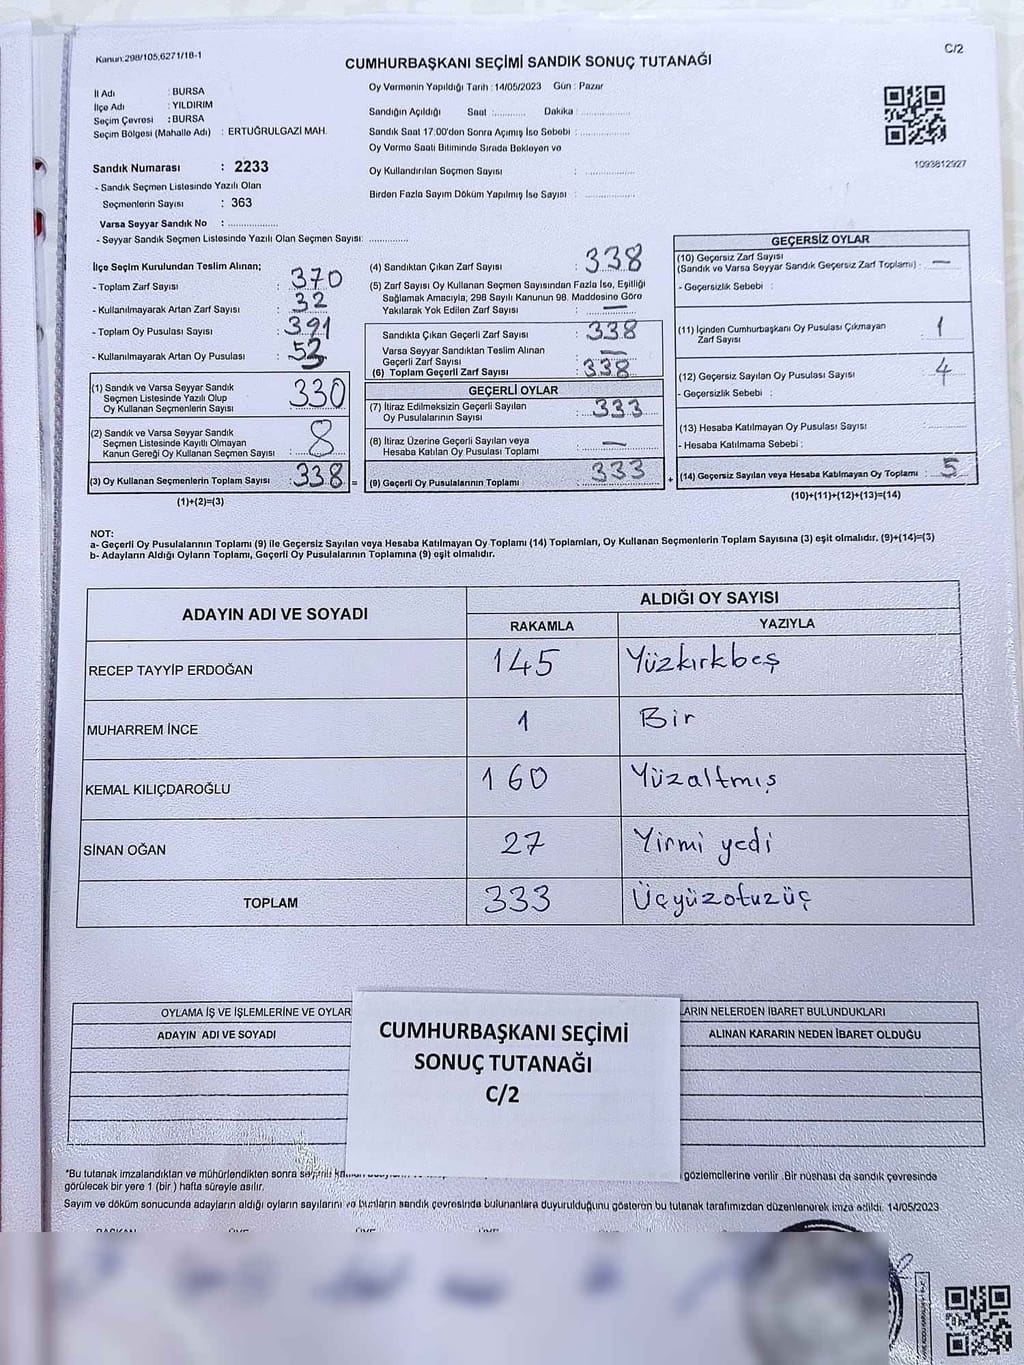 Kanun:298/105,6271/18-1
C/2
CUMHURBAŞKANI SEÇİMİ SANDIK SONUÇ TUTANAĞI
İl Adı : BURSA
İlçe Adı : YILDIRIM
Seçim Çevresi : BURSA
Seçim Bölgesi (Mahalle Adı) : ERTUĞRULGAZİ MAH.
Sandık Numarası : 2233
- Sandık Seçmen Listesinde Yazılı Olan
Seçmenlerin Sayısı : 363
Varsa Seyyar Sandık No : ..................
- Seyyar Sandık Seçmen Listesinde Yazılı Olan Seçmen Sayısı: ..............
Oy Vermenin Yapıldığı Tarih : 14/05/2023 Gün : Pazar
Sandığın Açıldığı Saat : ............ Dakika : .................
Sandık Saat 17:00'den Sonra Açımış İse Sebebi : .................
Oy Verme Saati Bitiminde Sırada Bekleyen ve
Oy Kullandırılan Seçmen Sayısı : .................
Birden Fazla Sayım Döküm Yapılmış İse Sayısı : .................
1093812927
İlçe Seçim Kurulundan Teslim Alınan;
- Toplam Zarf Sayısı : 370
- Kullanılmayarak Artan Zarf Sayısı : 32
- Toplam Oy Pusulası Sayısı : 391
- Kullanılmayarak Artan Oy Pusulası : 53
(1) Sandık ve Varsa Seyyar Sandık
Seçmen Listesinde Yazılı Olup
Oy Kullanan Seçmenlerin Sayısı : 330
(2) Sandık ve Varsa Seyyar Sandık
Seçmen Listesinde Kayıtlı Olmayan
Kanun Gereği Oy Kullanan Seçmen Sayısı : 8
(3) Oy Kullanan Seçmenlerin Toplam Sayısı : 338 =
(1)+(2)=(3)
(4) Sandıktan Çıkan Zarf Sayısı : 338
(5) Zarf Sayısı Oy Kullanan Seçmen Sayısından Fazla İse, Eşitliği
Sağlamak Amacıyla, 298 Sayılı Kanunun 98. Maddesine Göre
Yakılarak Yok Edilen Zarf Sayısı : —
Sandıkta Çıkan Geçerli Zarf Sayısı : 338
Varsa Seyyar Sandıktan Teslim Alınan
Geçerli Zarf Sayısı : —
(6) Toplam Geçerli Zarf Sayısı : 338
GEÇERLİ OYLAR
(7) İtiraz Edilmeksizin Geçerli Sayılan
Oy Pusulalarının Sayısı : 333
(8) İtiraz Üzerine Geçerli Sayılan veya
Hesaba Katılan Oy Pusulası Toplamı : —
(9) Geçerli Oy Pusulalarının Toplamı : 333 +
GEÇERSİZ OYLAR
(10) Geçersiz Zarf Sayısı
(Sandık ve Varsa Seyyar Sandık Geçersiz Zarf Toplamı) : —
- Geçersizlik Sebebi :
(11) İçinden Cumhurbaşkanı Oy Pusulası Çıkmayan
Zarf Sayısı : 1
(12) Geçersiz Sayılan Oy Pusulası Sayısı : 4
- Geçersizlik Sebebi :
(13) Hesaba Katılmayan Oy Pusulası Sayısı :
- Hesaba Katılmama Sebebi :
(14) Geçersiz Sayılan veya Hesaba Katılmayan Oy Toplamı : 5
(10)+(11)+(12)+(13)=(14)
NOT:
a- Geçerli Oy Pusulalarının Toplamı (9) ile Geçersiz Sayılan veya Hesaba Katılmayan Oy Toplamı (14) Toplamları, Oy Kullanan Seçmenlerin Toplam Sayısına (3) eşit olmalıdır. (9)+(14)=(3)
b- Adayların Aldığı Oyların Toplamı, Geçerli Oy Pusulalarının Toplamına (9) eşit olmalıdır.
ADAYIN ADI VE SOYADI
ALDIĞI OY SAYISI
RAKAMLA YAZIYLA
RECEP TAYYİP ERDOĞAN 145 Yüzkırkbeş
MUHARREM İNCE 1 Bir
KEMAL KILIÇDAROĞLU 160 Yüzaltmış
SİNAN OĞAN 27 Yirmi yedi
TOPLAM 333 Üçyüzotuzüç
OYLAMA İŞ VE İŞLEMLERİNE VE OYLAR
ARIN NELERDEN İBARET BULUNDUKLARI
ADAYIN ADI VE SOYADI
ALINAN KARARIN NEDEN İBARET OLDUĞU
CUMHURBAŞKANI SEÇİMİ
SONUÇ TUTANAĞI
C/2
*Bu tutanak imzalandıktan ve mühürlendikten sonra
gözlemcilerine verilir . Bir nüshası da sandık çevresinde
görülecek bir yere 1 (bir ) hafta süreyle asılır.
Sayım ve döküm sonucunda adayların aldığı oyların sayılarını ve bunların sandık çevresinde bulunanlara duyurulduğunu gösteren bu tutanak tarafımızdan düzenlenerek imza edildi. 14/05/2023
BAŞKAN ÜYE ÜYE ÜYE